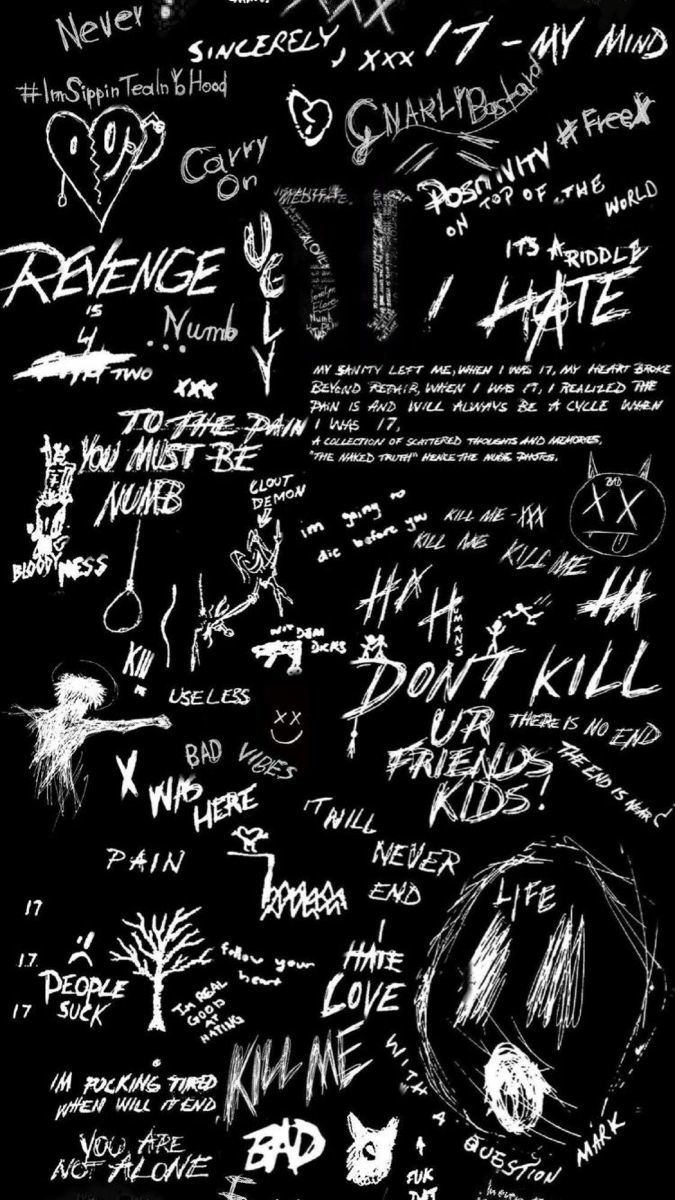 Never
SINCERELY, XXX
17 - MY MIND
#ImSippinTeaInYoHood
GNARLY Bastard
#FreeX
Carry
On
POSITIVITY
ON TOP OF THE
WORLD
MEDITATE
UGLY
REVENGE
IS
4
TWO
... Numb
XXX
ITS A
RIDDLE
I HATE
MY SANITY LEFT ME, WHEN I WAS 17, MY HEART BROKE
BEYOND REPAIR, WHEN I WAS 17, I REALIZED THE
PAIN IS AND WILL ALWAYS BE A CYCLE WHEN
I WAS 17,
A COLLECTION OF SCATTERED THOUGHTS AND MEMORIES,
"THE NAKED TRUTH" HENCE THE NUDE PHOTOS.
TO THE PAIN
YOU MUST BE
NUMB
CLOUT
DEMON
BLOODY MESS
im going to
die before you
KILL ME - XXX
KILL ME
KILL ME
BAD
HA
HUMANS
HA
WIT DEM
DICKS
KILL
USELESS
DON'T KILL
UR
FRIENDS
KIDS!
THERE IS NO END
THE END IS NEAR
BAD VIBES
X WAS
HERE
IT WILL
NEVER
END
PAIN
LIFE
17
17
17
PEOPLE
SUCK
follow your
heart
IM REAL
GOOD
AT
HATING
I
HATE
LOVE
KILL ME
IM FUCKING TIRED
WHEN WILL IT END
YOU ARE
NOT ALONE
BAD
WITH A QUESTION MARK
4
FUK
DAT